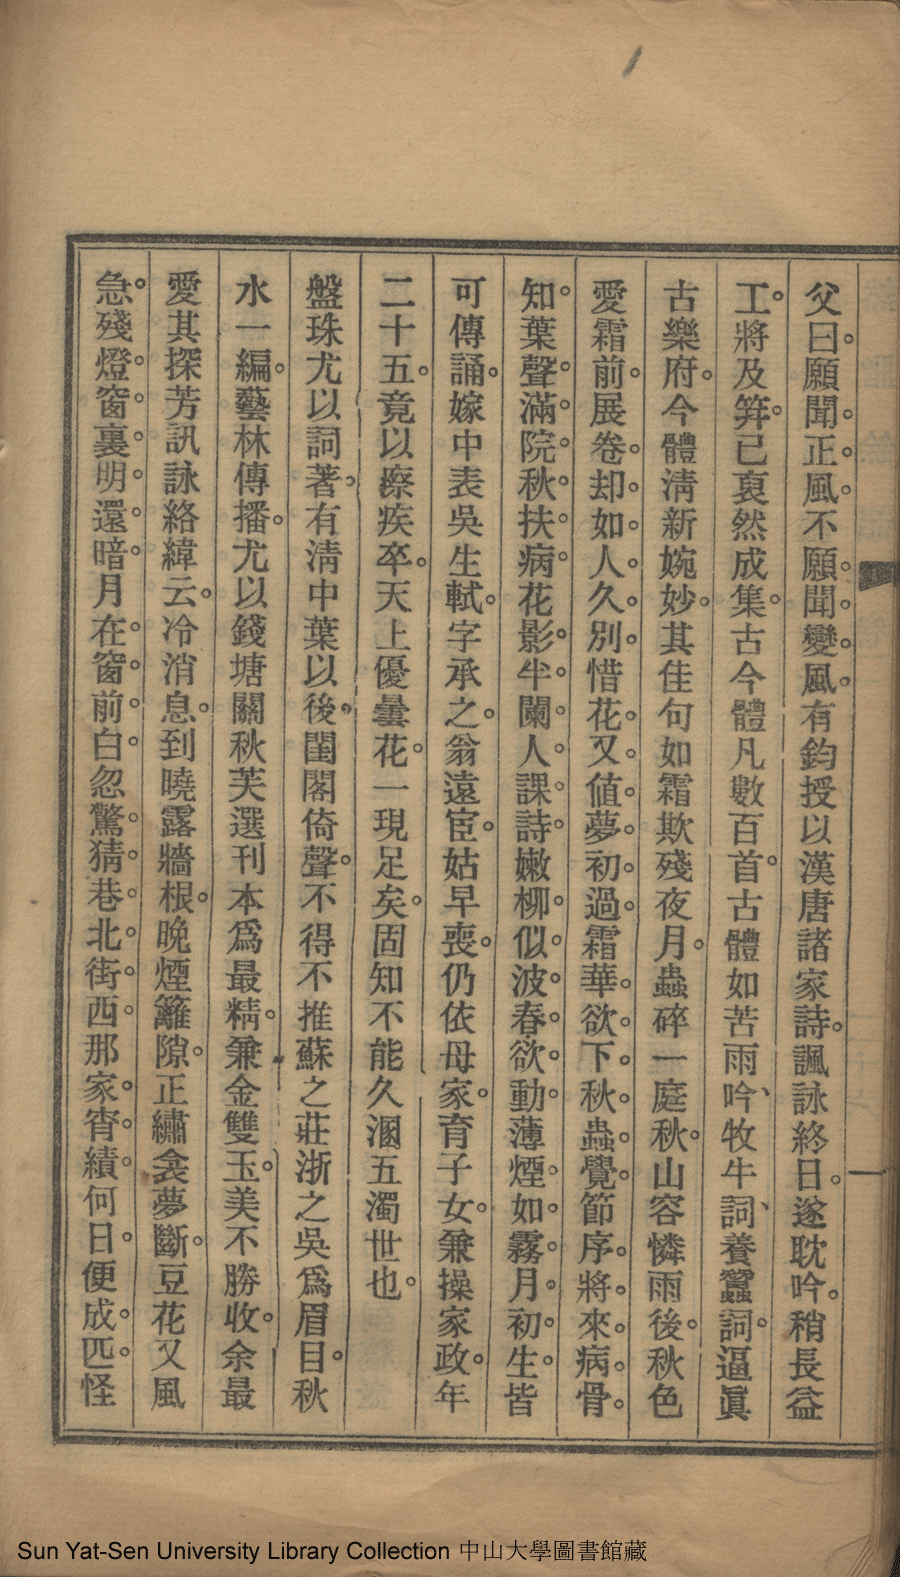 父曰。願聞。正。風。不願。聞。變。風。有鈞授以漢唐諸家詩。諷詠終日。遂耽吟。稍長益
工。將及笄。已裒然成集。古今體凡數百首。古體如苦雨吟、牧牛詞、養蠶詞。逼眞
古樂府。今體淸新婉妙。其佳句如霜欺殘夜月。蟲碎一庭秋。山容憐雨後。秋色
愛霜前。展卷。却。如。人。久。別。惜花。又。値。夢。初。過。霜華。欲。下。秋。蟲。覺。節序。將。來。病。骨。
知。葉聲。滿。院。秋。扶。病。花影。半。闌。人。課。詩。嫩柳。似。波。春。欲。動。薄煙。如。霧。月。初。生。皆
可傳誦。嫁中表吳生軾。字承之。翁遠宦。姑早喪。仍依母家。育子女。兼操家政。年
二十五。竟以瘵疾卒。天上優曇花。一現足矣。固知不能久溷五濁世也。
盤珠尤以詞著。有淸中葉以後。閨閣倚聲。不得不推蘇之莊浙之吳爲眉目。秋
水一編。藝林傳播。尤以錢塘關秋芙選刊本爲最精。兼金雙玉。美不勝收。余最
愛其探芳訊詠絡緯云。冷消息。到曉露牆根。晚煙籬隙。正繡衾夢斷。豆花又風
急。殘燈。窗。裏。明。還。暗。月在。窗。前。白。忽驚。猜。巷。北。街。西。那家。宵。績。何日。便成。匹。怪
Sun Yat-Sen University Library Collection 中山大學圖書館藏